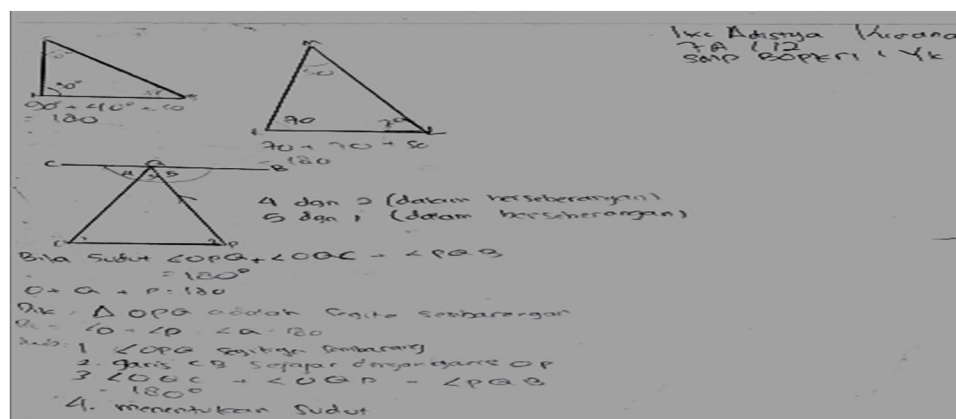 7A / 12
SMP BOPKRI 1 YK
90° + 40° + 50
= 180
50
70
70 + 70 + 50
= 180
C Q B
4 5
4 dgn 2 (dalam berseberangan)
5 dgn 1 (dalam berseberangan)
O P
Bila Sudut ∠OPQ + ∠OQC + ∠PQB
= 180°
O + Q + P = 180
Dik = △ OPQ adalah segitiga sembarangan
∠O + ∠P ∠Q = 180
1 ∠OPQ segitiga sembarang
2. garis CB sejajar dengan garis OP
3 ∠OQC + ∠OQP + ∠PQB
= 180°
4. menentukan sudut